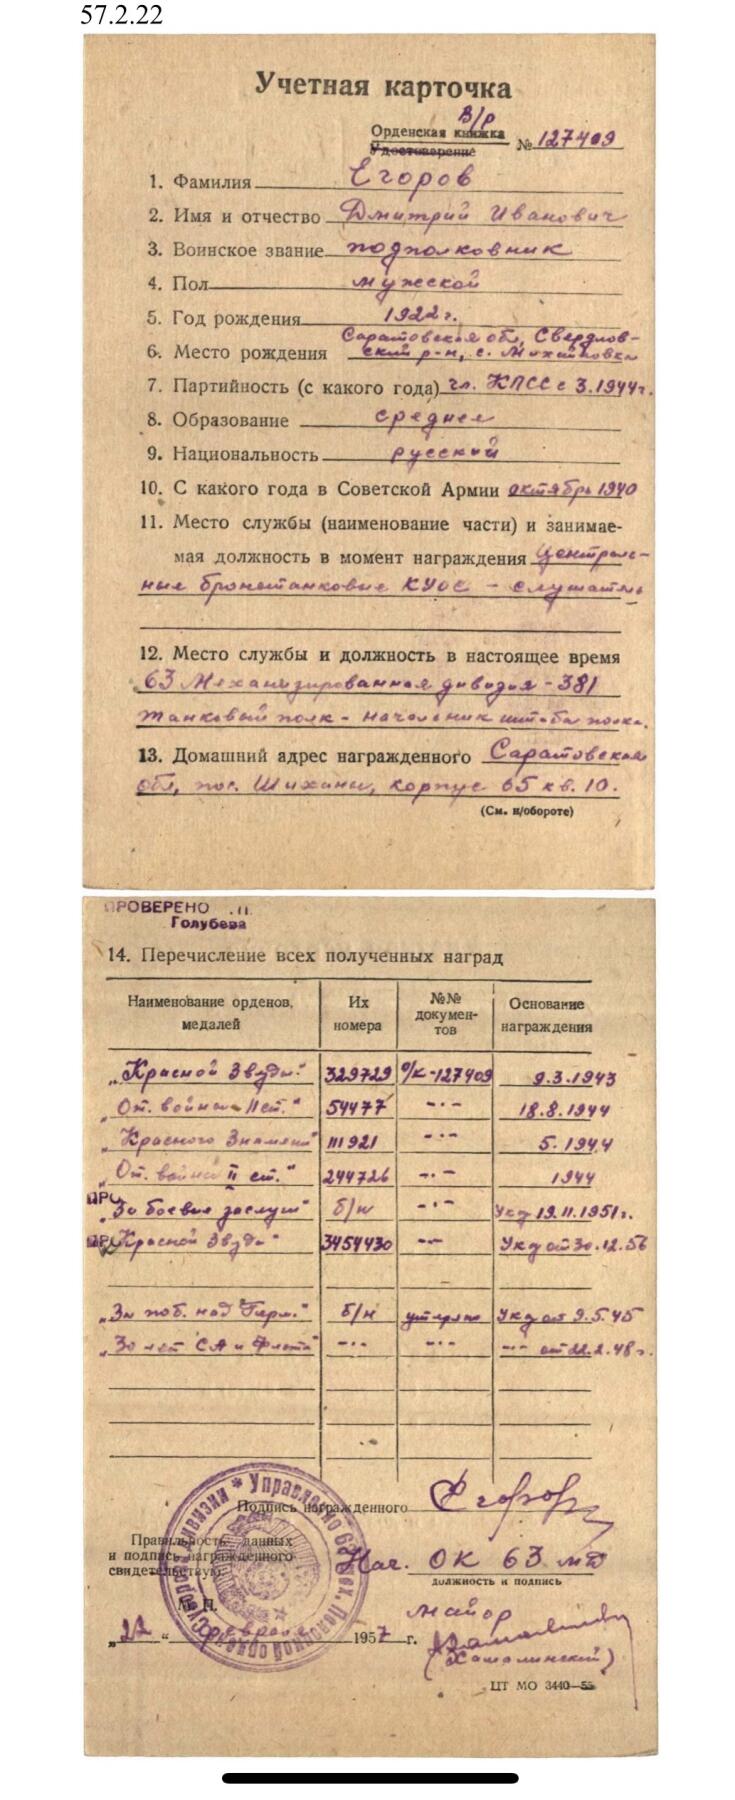 57.2.22
Учетная карточка
В/р
Орденская книжка
Удостоверение № 127409
1. Фамилия Егоров
2. Имя и отчество Дмитрий Иванович
3. Воинское звание подполковник
4. Пол мужской
5. Год рождения 1922 г.
Саратовская обл, Свердлов-
6. Место рождения ский р-н, с. Михайловка
7. Партийность (с какого года) чл. КПСС с 3.1944г.
8. Образование среднее
9. Национальность русский
10. С какого года в Советской Армии октябрь 1940
11. Место службы (наименование части) и занимае-
мая должность в момент награждения Централь-
ные бронетанковые КУОС - слушатель
12. Место службы и должность в настоящее время
63 Механизированная дивизия - 381
танковый полк - начальник штаба полка.
13. Домашний адрес награжденного Саратовская
обл, пос. Шиханы, корпус 65 кв. 10.
(См. н/обороте)
ПРОВЕРЕНО
Голубева
14. Перечисление всех полученных наград
Наименование орденов, медалей Их номера №№ документов Основание награждения
„Красной Звезды" 329729 о/к-127409 9.3.1943
„От. войны II ст." 54477 -"- 18.8.1944
„Красного Знамени" 111921 -"- 5.1944
„От. войны II ст." 244726 -"- 1944
ПРО
„За боевые заслуги" б/н -"- Указ 19.11.1951г.
„Красной Звезды" 3454430 -"- Указ от 30.12.56
„За поб. над Герм." б/н утеряно Указ от 9.5.45
„30 лет СА и Флота" -"- -"- -"- от 22.2.48г.
Подпись награжденного Егоров
Правильность данных
и подпись награжденного
свидетельствую
Нач. ОК 63 мд
должность и подпись
М. П.
майор
„22" февраля 1957 г.
(Хамалинский)
ЦТ МО 3440—55